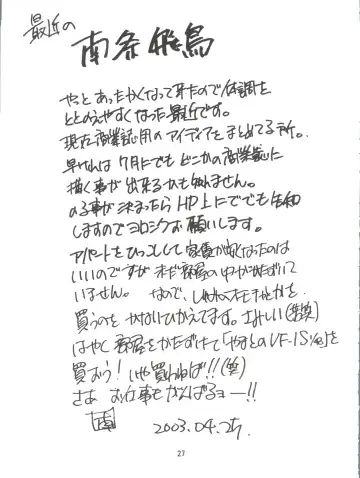 最近の
南条飛鳥
やっとあったかくなって来たので体調を
ととのえやすくなった最近です。
現在商業誌用のアイディアをまとめてる所。
早ければ7月にでもどこかの商業誌に
描く事が出来るかも知れません。
のる事が決まったらHP上にでも告知
しますのでヨロシクお願いします。
アパートをひっこしして家賃が安くなったのは
いいのですが まだ部屋の中が片づいて
いません。 なので、
買うのを ひかえてます。
はやく部屋をかたづけて「やまとのVF-1S」を
買おう! いや買わねば!!(笑)
さあ お仕事もがんばるヨー!!
2003.04.
27